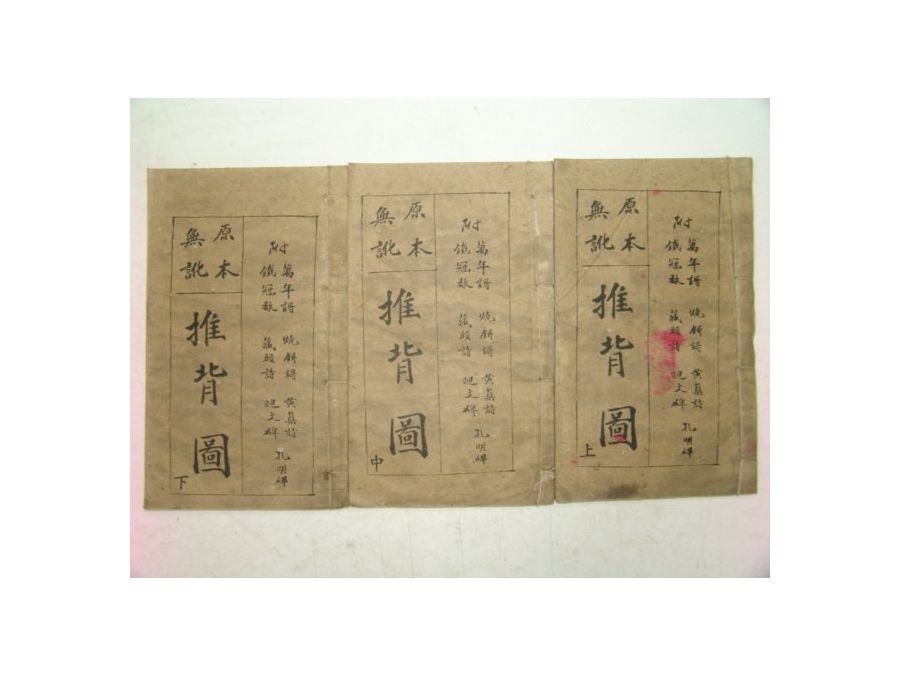 附
萬年謌 燒餅謌 黃蘗詩 孔明碑
鐵冠數 藏頭詩 文碑
原本
無訛
推背圖
上
附
萬年謌 燒餅謌 黃蘗詩 孔明碑
鐵冠數 藏頭詩 文碑
原本
無訛
推背圖
中
附
萬年謌 燒餅謌 黃蘗詩 孔明碑
鐵冠數 藏頭詩 文碑
原本
無訛
推背圖
下